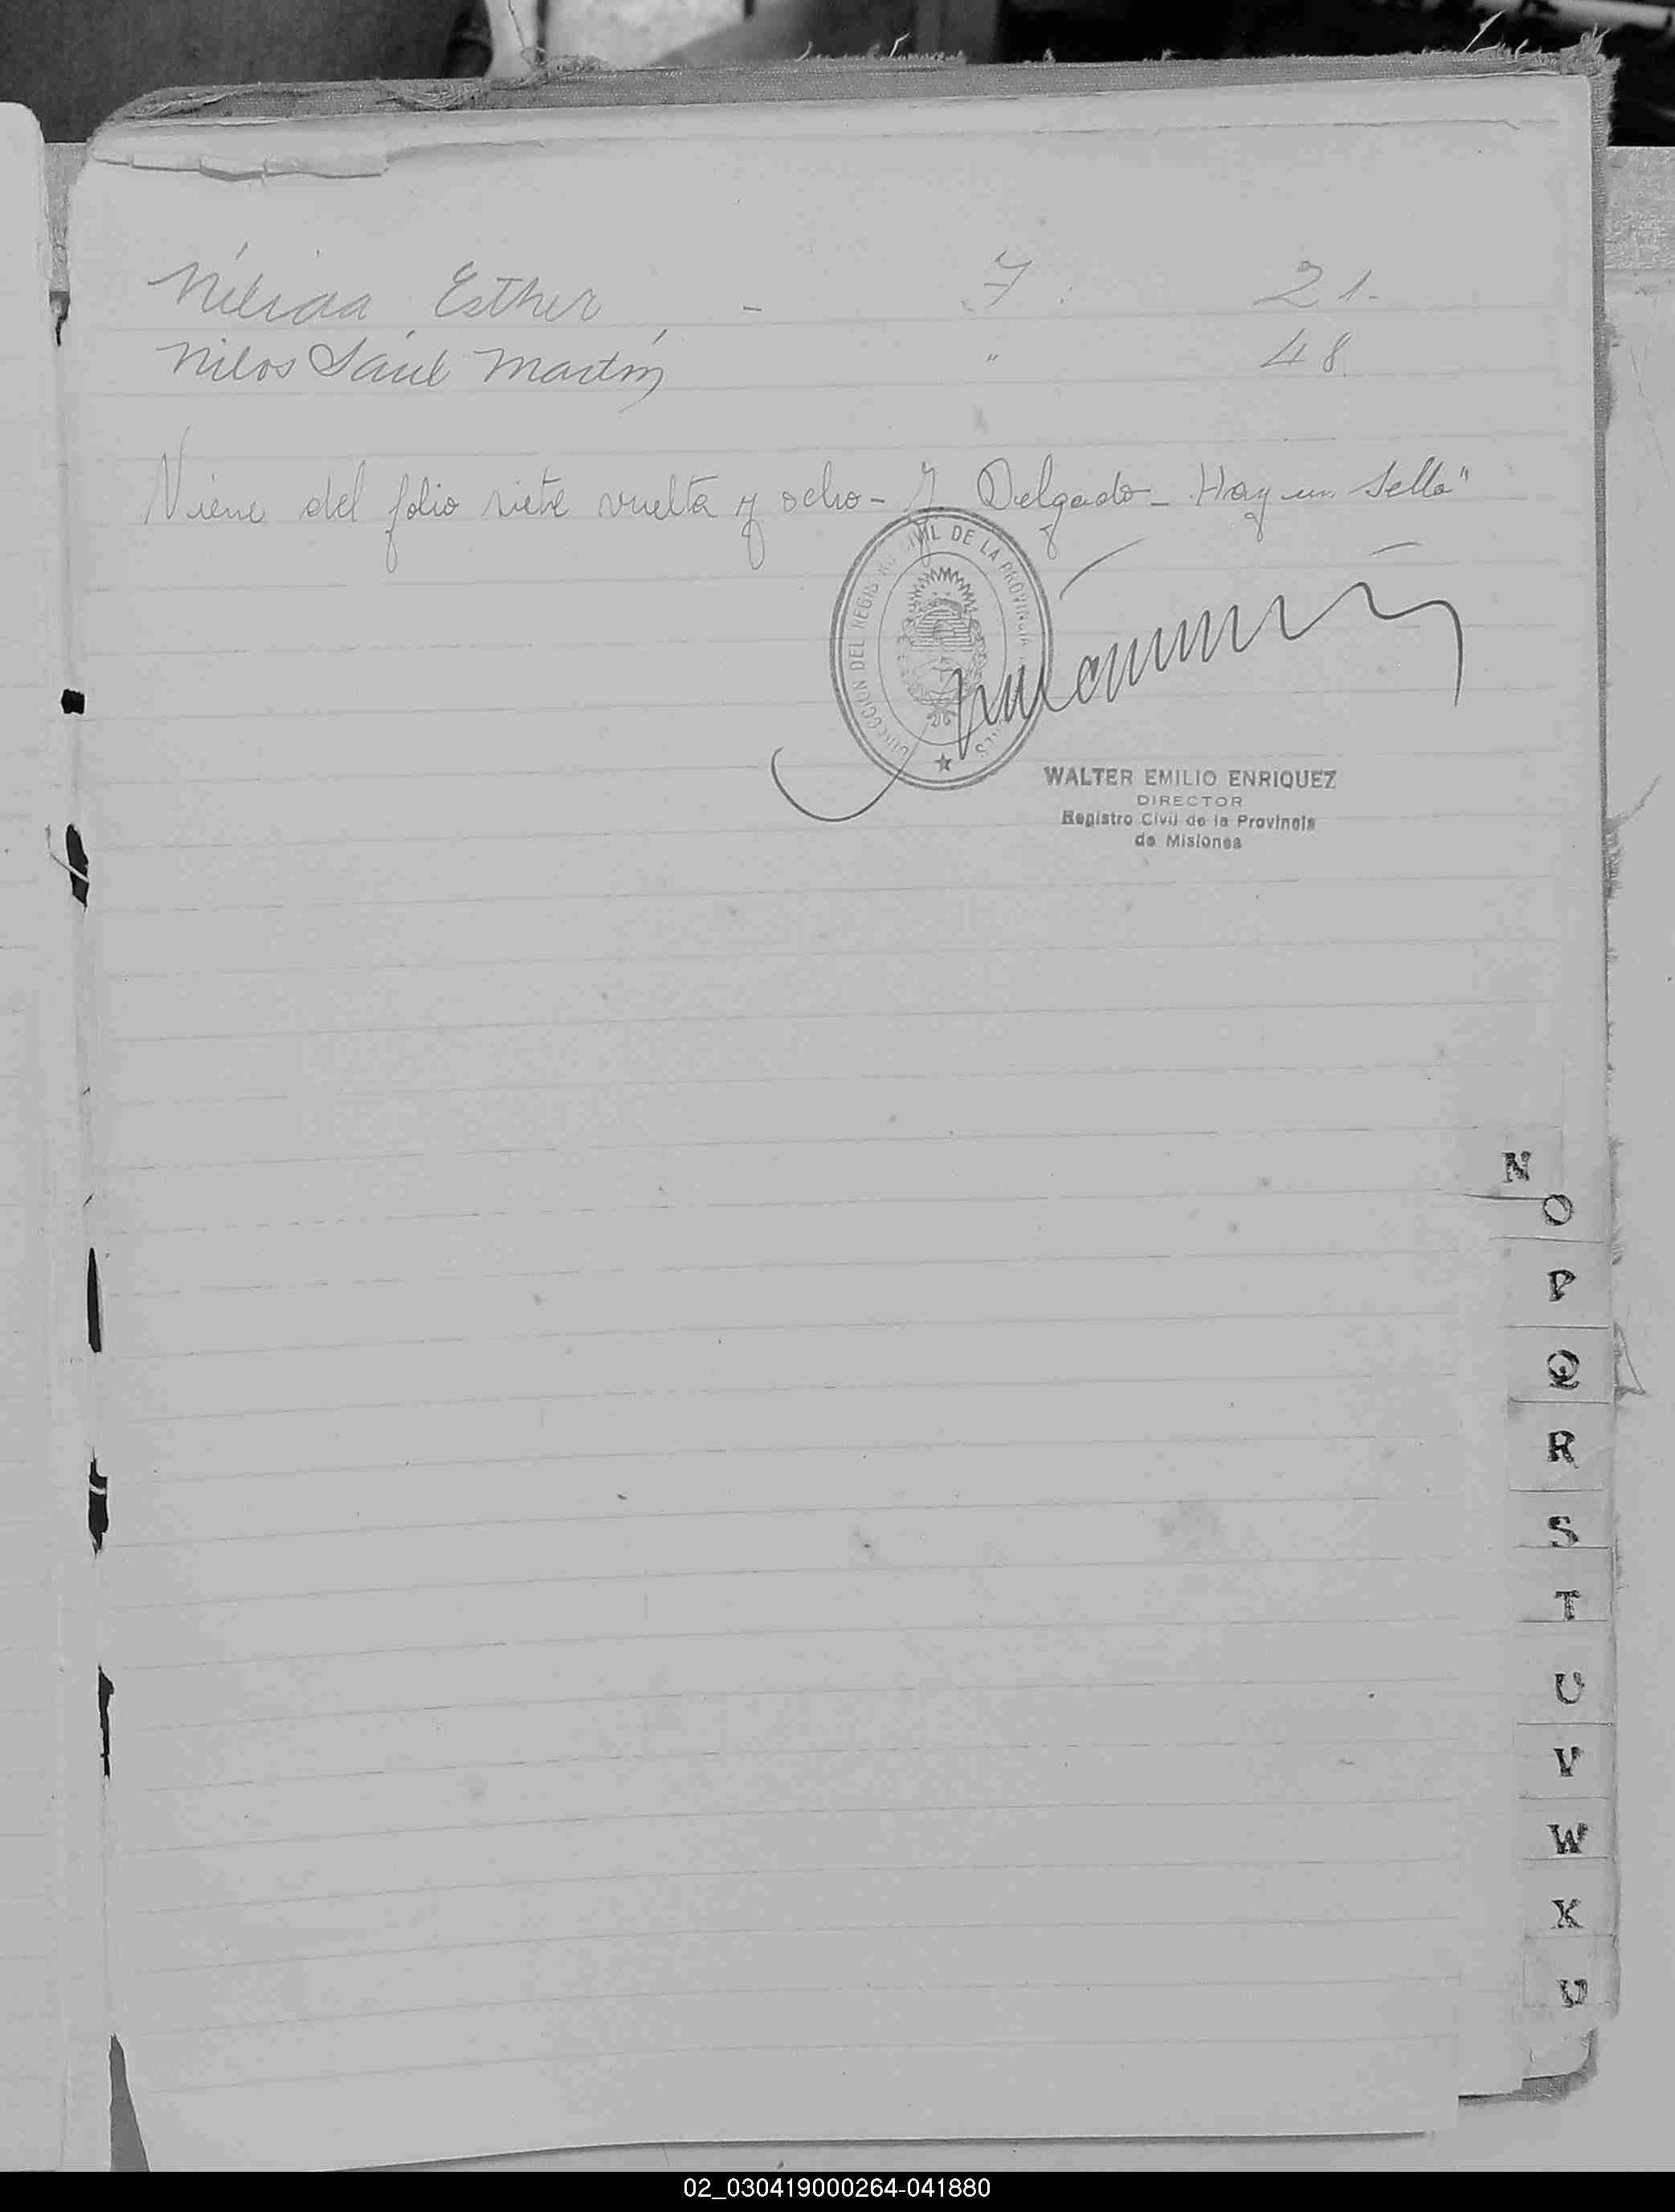 Nélida Esther - F. 21.
Nilos Saúl Martín " 48.
Viene del folio siete vuelta y ocho - J Delgado - Hay un sello"
DIRECCION DEL REGISTRO CIVIL DE LA PROVINCIA
WALTER EMILIO ENRIQUEZ
DIRECTOR
Registro Civil de la Provincia
de Misiones
N
O
P
Q
R
S
T
U
V
W
X
02_030419000264-041880